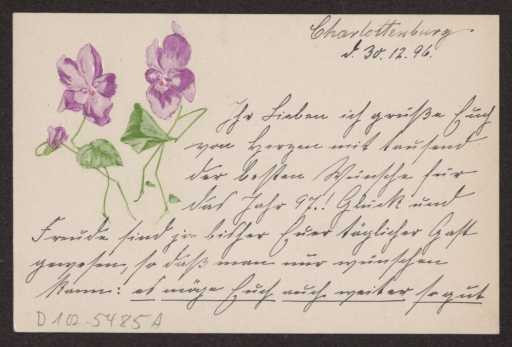 Charlottenburg
d. 30.12.96.
Ihr Lieben ich grüße Euch
von Herzen mit tausend
der besten Wünsche für
das Jahr 97.! Glück und
Freude sind ja bisher Euer täglicher Gast
gewesen, so daß man nur wünschen
kann: es möge Euch auch weiter so gut
D 102-5485A